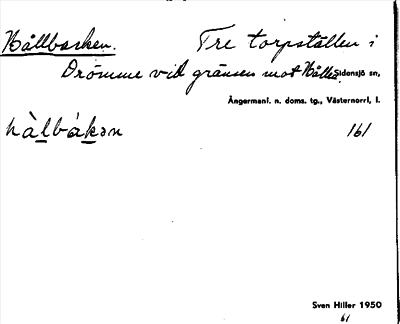 Nållbacken. Tre torpställen i
Drömme vid gränsen mot Nälle Sidensjö sn,
Ångermanl. n. doms. tg., Västernorrl, l.
nàlbákən 161
Sven Hiller 1950
61